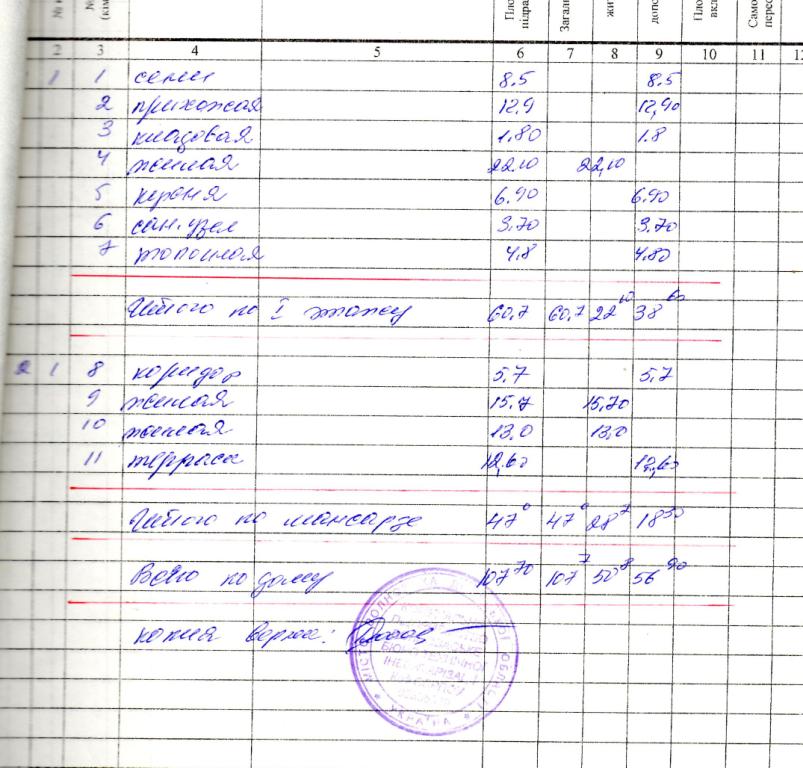 №
№ (кім
Пло підра
Загал
жит
допо
Пло вкл
Само перес
2 3 4 5 6 7 8 9 10 11 12
1 1 сени 8.5 8.5
2 прихожая 12,9 12,90
3 кладовая 1.80 1.8
4 жилая 22.10 22,10
5 кухня 6.90 6.90
6 сан.узел 3.70 3.70
7 топочная 4.8 4.80
Итого по I этажу 60,7 60,7 22 10 38 60
2 1 8 коридор 5.7 5.7
9 жилая 15.7 15,70
10 жилая 13,0 13,0
11 терраса 12,60 12,60
Итого по мансарде 47 0 47 0 28 7 18 30
Всего по дому 107 70 107 7 50 8 56 90
копия верна:
БЮРО ТЕХНІЧНОЇ
ІНВЕНТАРИЗАЦІЇ
УКРАЇНА